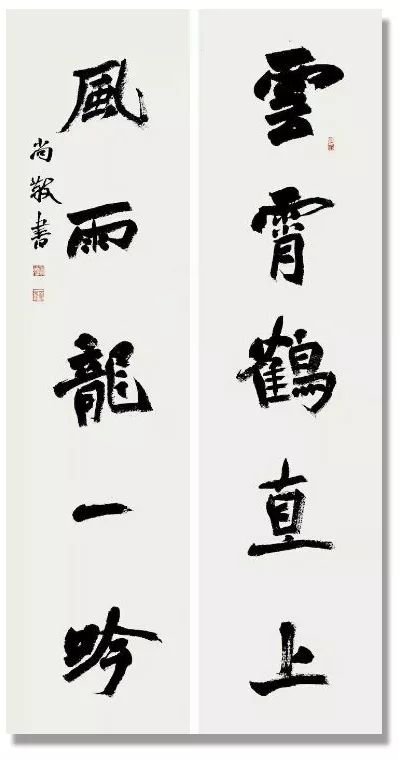 雲霄鶴直上
風雨龍一吟
尚敬書